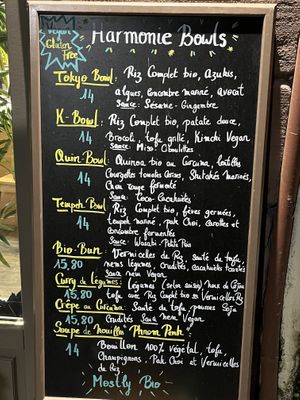 Vegan
Gluten
Free
Harmonie Bowls
Tokyo Bowl: Riz Complet bio, Azukis,
14 algues, Concombre mariné, avocat
Sauce: Sésame-Gingembre
K-Bowl: Riz Complet bio, patate douce,
14 Brocoli, tofu grillé, Kimchi Vegan
Sauce: Miso Ciboulette
Quin-Bowl: Quinoa bio au Curcuma, lentilles
14 Courgettes tomates Cerises, Shiitakés marinés,
Chou rouge fermenté
Sauce: Coco-Cacahuète
Tempeh Bowl: Riz Complet bio, fèves germées,
14 tempeh mariné, pak Choï, Carottes et
Concombre fermentés
Sauce: Wasabi-Petits Pois
Bio-Bun: Vermicelles de Riz, sauté de tofu,
15,80 nems légumes, Crudités, cacahuètes
Sauce nem Vegan
Curry de Légumes: Légumes (selon saison) Maux de Soja
15,80 tofu avec Riz Complet bio ou Vermicelles Riz
Crêpe au Curcuma: Sauté de tofu, pousses Soja
15,80 Crudités Sauce nem Vegan
Soupe de Nouilles Phnom Penh:
14 Bouillon 100% végétal, tofu
Champignons, Pak Choï et Vermicelles
de Riz.
Mostly Bio